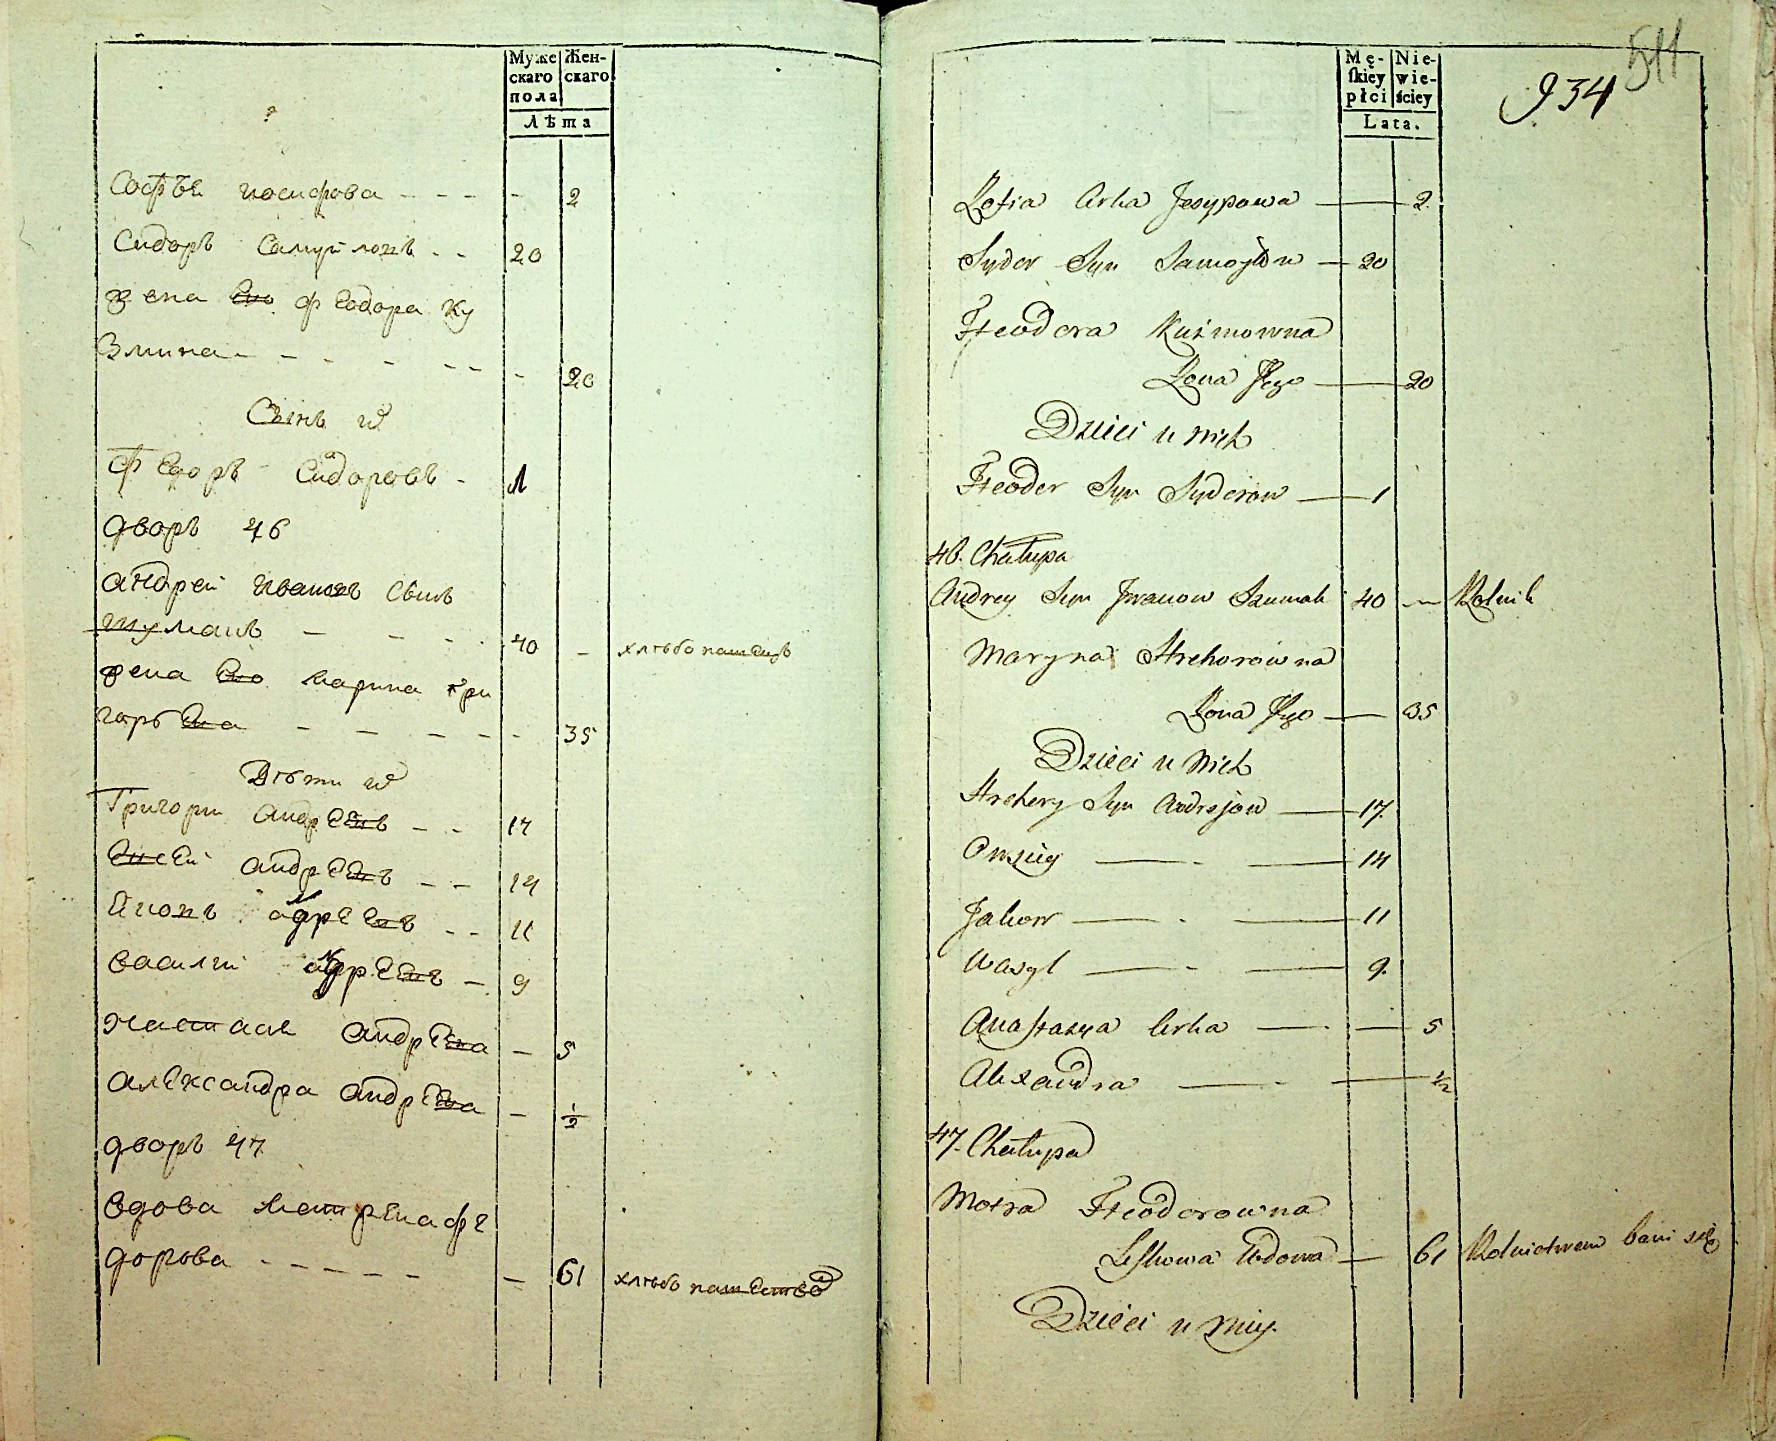 Муже Жен-
скаго скаго
пола
Лѣта
Софѣи иосифова - - - - 2
Сидоръ Самуилонъ - - 20
жена Его Феодора Ку
змина - - - - - - - 20
Сынъ
Федоръ Сидоровъ - 1
дворъ 46
андрей Ивановъ Сынъ
шуманъ - - - - 40 - хлѣбопашецъ
жена Его марина Гри
горьева - - - - - - 35
Дѣти
Григори андреевъ - - 17
андреевъ - - 14
андреевъ - - 11
василий андреевъ - 9
настася андреева - 5
александра андреева - 1/2
дворъ 47
вдова матрена фе
дорова - - - - - - 61 хлѣбопашество
Mę- Nie-
ſkiey wie-
płci ściey
Lata.
934
511
Zofia Corka Jesypowa — 2
Sydor Syn Samoylow — 20
Fteodora Kuźmowna
Żona Jego — 20
Dzieci u nich
Fteodor Syn Syderow — 1
46. Chałupa
Andrey Syn Jwanow Szumak 40 — Rolnik
Maryna Hrehorowna
Żona Jego — 35
Dzieci u nich
Hrehory Syn Andrejow — 17.
— 14
Jakow — 11
Wasyl — 9.
Anastazya Corka — 5
Alexandra — 1/2
47. Chałupa
Motra Fteodorowna
Wdowa — 61 Rolnictwem bawi się
Dzieci u niey.